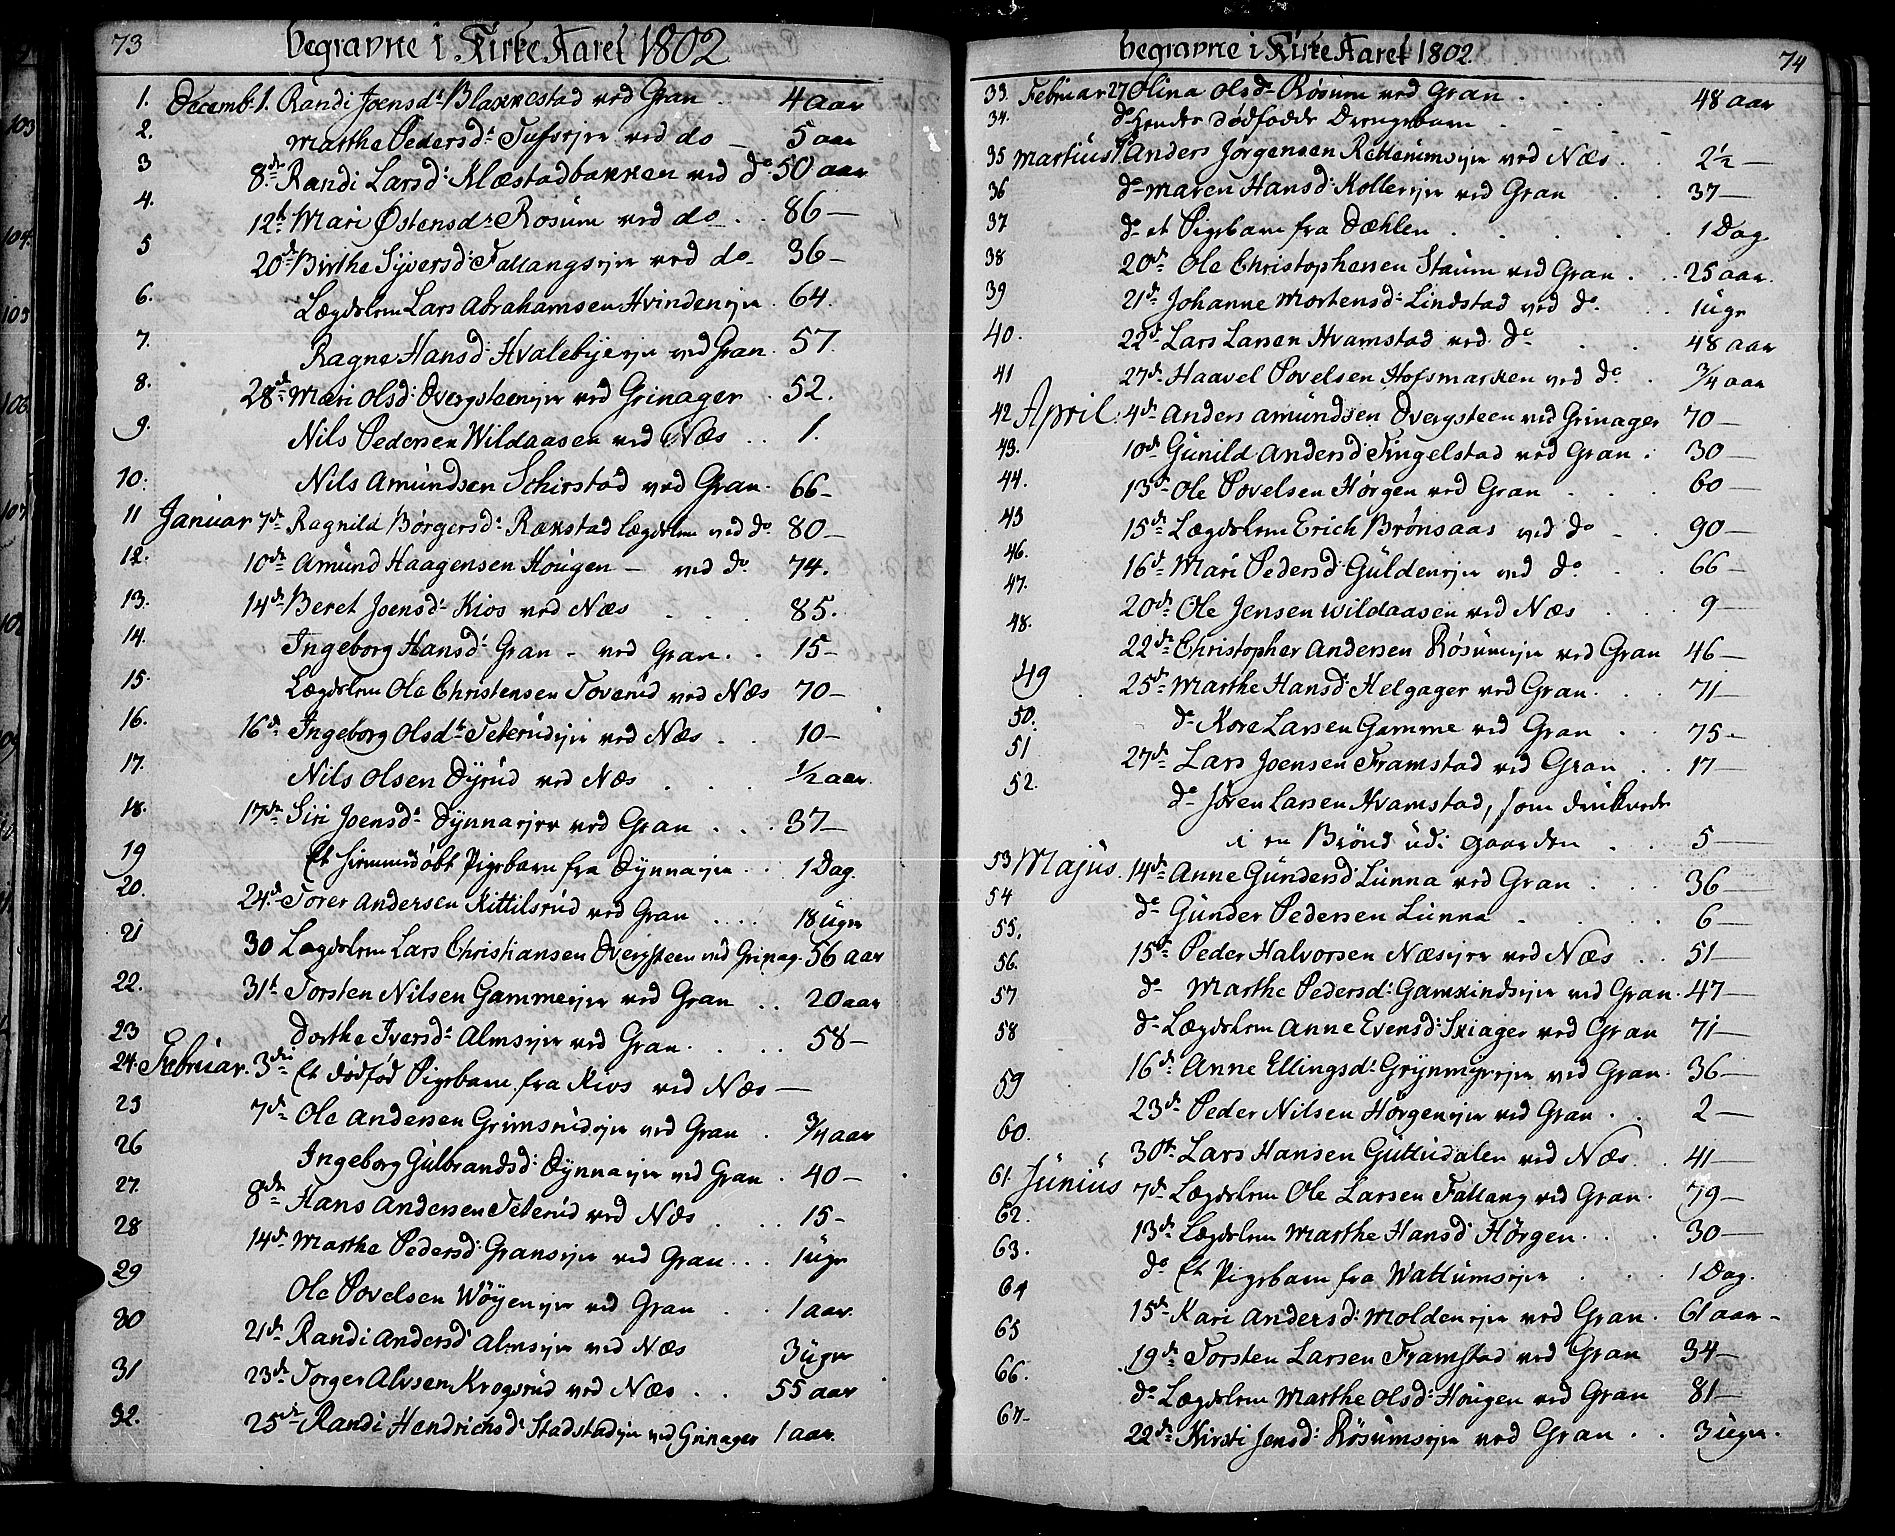 73 begravne i Kirke Aaret 1802
1. Decemb: 1. Randi Joensd: Blakkestad ved Gran . 4 aar
2. Marthe Pedersd: Tufsejer ved do 5 aar
3 8de Randi Larsd: Klæstadbakken ved do 50 aar
4. 12t Mari Østensd: Rosum ved do . . 86 —
5 20de Birthe Syversd: Fallangsejer ved do 36 —
6. Lægdslem Lars Abrahamsen Hvindenejer . 64.
7. Ragne Hansd: Hvalebyeejer ved Gran . 57.
8. 28de Mari Olsd: Dvergsteenejer ved Grinager . 52.
9. Nils Pedersen Wildaasen ved Næs . . 1.
10: Nils Amundsen Schirstad ved Gran . 66 —
11 Januar 7de Ragnild Børgersd: Rækstad lægdslem ved do 80 —
12. 10de Amund Haagensen Hougen — ved do 74.
13. 14de Beret Joensd: Kios ved Næs . . . 85.
14. Ingeborg Hansd: Gran - ved Gran . . 15 —
15. Lægdslem Ole Christensen Toverud ved Næs 70 —
16. 16de Ingeborg Olsd: Teterudejer ved Næs . . 10 —
17. Nils Olsen Dyrud ved Næs . . . 1/2 aar
18. 17de Siri Joensd: Dynnaejer ved Gran . . . 37 —
19 Et hiemmedøbt Pigebarn fra Dynnaejer . . 1 Dag.
20. 24de Torer Andersen Kittilsrud ved Gran . . . . 18 uger
21 30 Lægdslem Lars Christiansen Dvergsteen ved Grinag. 56 aar
22. 31t Torsten Nilsen Gammeejer ved Gran . . 20 aar
23 Dorthe Iversd: Almsejer ved Gran . . . . 58 —
24. Februar. 3die Et dødfød Pigebarn fra Kios ved Næs —
25 7de Ole Andersen Grimsrudejer ved Gran . 3/4 aar
26 Ingeborg Gulbrandsd: Dynnaejer ved Gran . 40 —
27. 8de Hans Andersen Teterud ved Næs . . . 15 —
28 14de Marthe Pedersd: Gransejer ved Gran . . . 1 uge
29 Ole Povelsen Wøyenejer ved Gran . . 1 aar.
30 21de Randi Andersd Almsejer ved Næs 3 uger
31 23de Torger Alvsen Krogsrud ved Næs . . 55 aar
32. 25de Randi Hendrichsd: Stadstadejer ved Grinager 1 aar.
begravne i Kirke Aaret 1802. 74
33. Februar 27 Olina Olsd: Røsum ved Gran . . . 48 aar
34. do Hendes dødfødde Drengebarn . . . .
35 Martius Anders Jørgensen Rettenimejer ved Næs . . 2 1/2 —
36 do Maren Hansd: Kollerejer ved Gran . . 37 —
37 do et Pigebarn fra Dæhlen . . . . 1 Dag
38 20de Ole Christophersen Staum ved Gran . . 25 aar.
39 21de Johanne Mortensd: Lindstad ved do . . 1 uge
40. 22de Lars Larsen Hvamstad ved do . . 48 aar
41 27de Haavel Povelsen Hofsmarken ved do . 3/4 aar
42 April. 4de Anders Amundsen Dvergsteen ved Grinager 70 —
43. 10de Gunild Andersd Tingelstad ved Gran . 30 —
44. 13de Ole Povelsen Hørgen ved Gran . . . 60 —
45 15de Lægdslem Erich Brønsaas ved do . . 90 —
46. 16de Mari Pedersd: Guldenejer ved do . . 66 —
47. 20de Ole Jensen Wildaasen ved Næs . . . 9 —
48. 22de Christopher Andersen Røsumejer ved Gran 46 —
49 25de Marthe Hansd: Helgager ved Gran . . . 71 —
50. do Kore Larsen Gamme ved Gran . . 75 —
51 27de Lars Joensen Framstad ved Gran . . 17 —
52. do Joren Larsen Hvamstad, som druknede
i en Brønd udi gaarden . . 5 —
53 Majus. 14de Anne Gundersd: Lunna ved Gran . . . 36 —
54 do Gunder Pedersen Lunna . . . . 6 —
55. 15de Peder Halvorsen Næsejer ved Næs . . 51 —
56. do Marthe Pedersd: Gamkindsejer ved Gran . 47 —
57 do Lægdslem Anne Evensd: Skiager ved Gran 71 —
58 16de Anne Ellingsd: Grynmyrejer ved Gran . 36 —
59 23de Peder Nilsen Hørgenejer ved Gran . . 2 —
60. 30te Lars Hansen Guttudalen ved Næs . . 41 —
61. Junius 7de Lægdslem Ole Larsen Fallang ved Gran . 79 —
62. 13de Lægdslem Marthe Hansd: Hørgen . . . . 30 —
63. do Et Pigebarn fra Wattumsejer . . . 1 Dag.
64 15de Kari Andersd: Moldenejer ved Gran . 61 aar —
65 19de Torsten Larsen Framstad ved Gran 34 —
66. do Lægdslem Marthe Olsd: Hougen ved Gran 81 —
67 — 22de Kirsti Jensd: Røsumsejer ved Gran . . 3 uger.